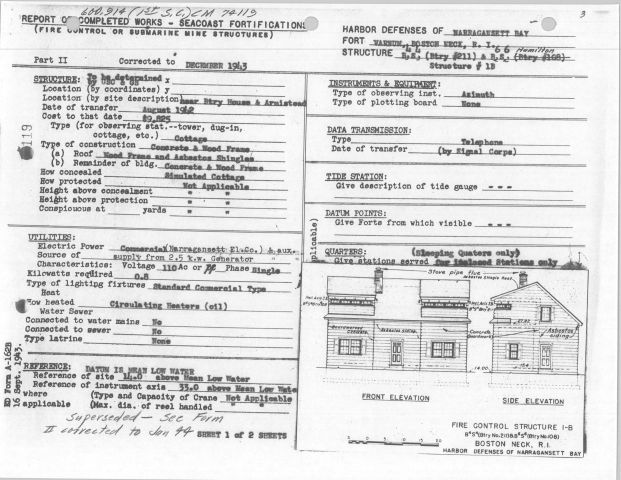 660.914 (1st S.C.) CM 74113
3
REPORT OF COMPLETED WORKS - SEACOAST FORTIFICATIONS
(FIRE CONTROL OR SUBMARINE MINE STRUCTURES)
Part II Corrected to DECEMBER 1943
HARBOR DEFENSES OF NARRAGANSETT BAY
FORT VARNUM, BOSTON NECK, R. I.
44 66 Hamilton
STRUCTURE B.S. (Btry #211) & B.S. (Btry #108)
Structure # 1B
119
STRUCTURE: To be determined by USC & GS
Location (by coordinates) x y
Location (by site description) near Btry House & Armistead
Date of transfer August 1942
Cost to that date $9,825
Type (for observing stat.--tower, dug-in, cottage, etc.) Cottage
Type of construction Concrete & Wood Frame
(a) Roof Wood Frame and Asbestos Shingles
(b) Remainder of bldg. Concrete & Wood Frame
How concealed Simulated Cottage
How protected Not Applicable
Height above concealment " "
Height above protection " "
Conspicuous at yards " "
UTILITIES:
Electric Power Commercial (Narragansett El. Co.) & aux.
Source of supply from 2.5 k.w. Generator
Characteristics: Voltage 110 Ac or Phase Single
Kilowatts required 0.8
Type of lighting fixtures Standard Commercial Type
Heat
How heated Circulating Heaters (oil)
Water Sewer
Connected to water mains No
Connected to sewer No
Type latrine None
REFERENCE: DATUM IS MEAN LOW WATER
Reference of site 14.0 above Mean Low Water
Reference of instrument axis 33.0 above Mean Low Water
where (Type and Capacity of Crane Not Applicable
applicable (Max. dia. of reel handled " "
ED Form A-162B
16 Sept. 1943.
Superseded - See Form
II corrected to Jan 44 SHEET 1 of 2 SHEETS
INSTRUMENTS & EQUIPMENT:
Type of observing inst. Azimuth
Type of plotting board None
DATA TRANSMISSION:
Type Telephone
Date of transfer (by Signal Corps)
TIDE STATION:
Give description of tide gauge - - -
DATUM POINTS:
Give Forts from which visible - - -
plicable)
QUARTERS: (Sleeping Quarters only)
Give stations served for isolated Stations only
Stove pipe flue
Asbestos Shingle Roof
Asbestos siding
Concrete
Asbestos siding
14.00
FRONT ELEVATION
SIDE ELEVATION
FIRE CONTROL STRUCTURE 1-B
BOSTON NECK, R.I.
HARBOR DEFENSES OF NARRAGANSETT BAY